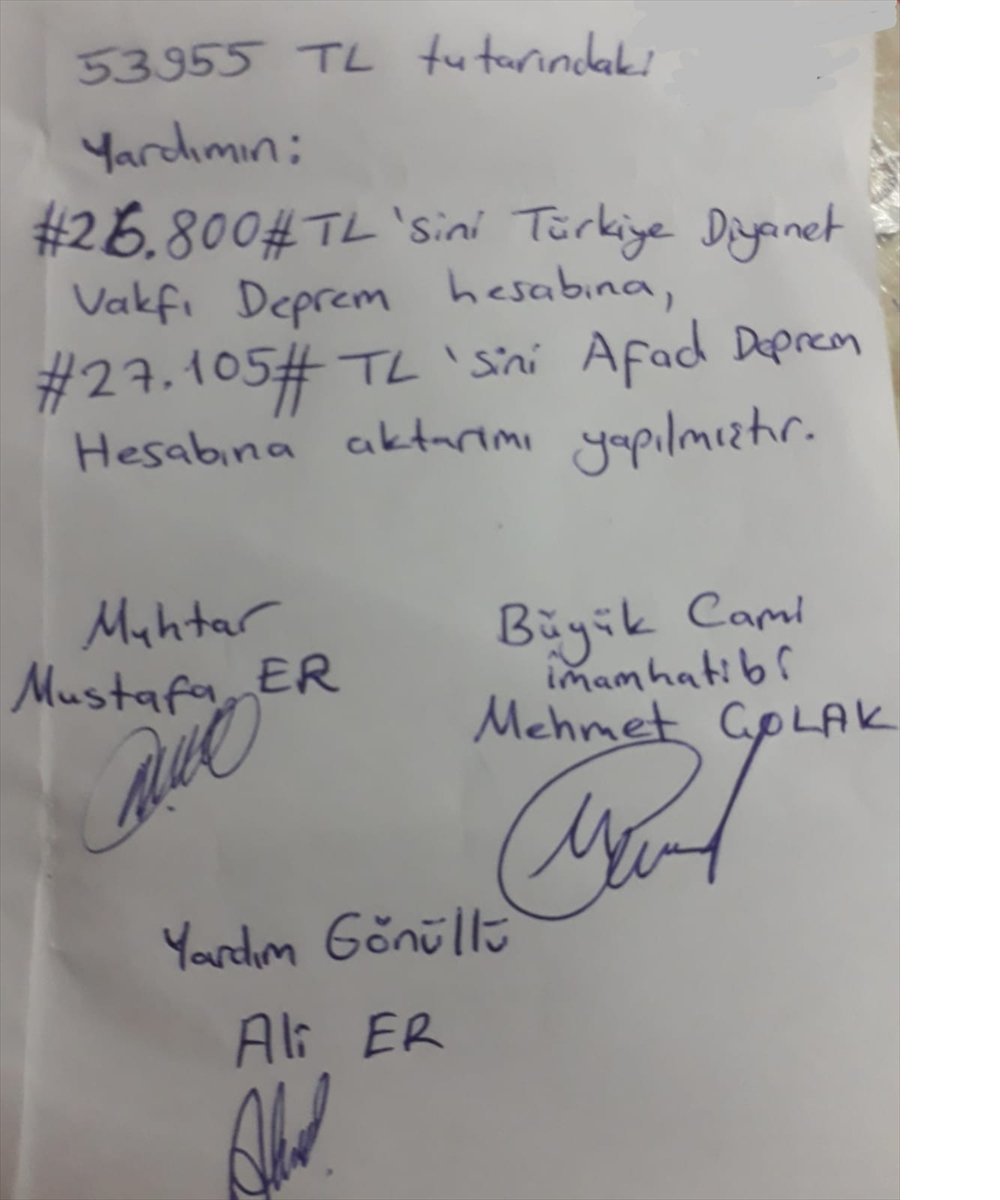 53955 TL tutarındaki
Yardımın:
#26.800#TL 'sini Türkiye Diyanet
Vakfı Deprem hesabına,
#27.105# TL 'sini Afad Deprem
Hesabına aktarımı yapılmıştır.
Muhtar
Mustafa ER
Büyük Cami
imamhatibi
Mehmet ÇOLAK
Yardım Gönüllü
Ali ER